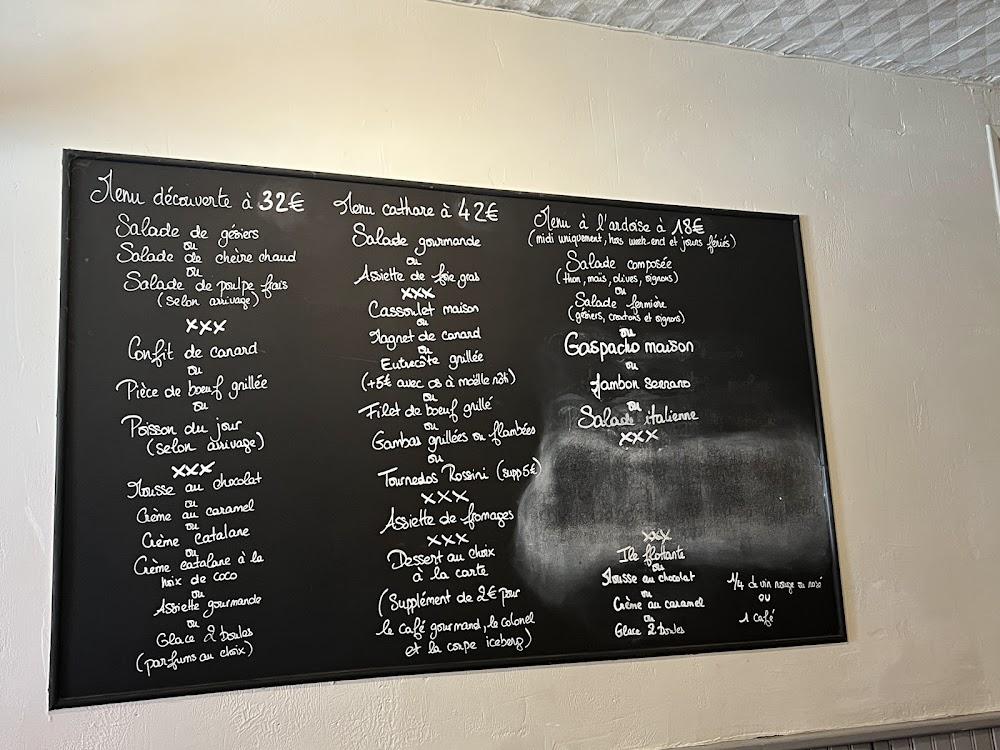 Menu découverte à 32€
Salade de gésiers
ou
Salade de chèvre chaud
ou
Salade de poulpe frais
(selon arrivage)
xxx
Confit de canard
ou
Pièce de boeuf grillée
ou
Poisson du jour
(selon arrivage)
xxx
Mousse au chocolat
ou
Crème au caramel
ou
Crème Catalane
ou
Crème catalane à la
noix de coco
ou
Assiette gourmande
ou
Glace 2 boules
(parfums au choix)
Menu cathare à 42€
Salade gourmande
ou
Assiette de foie gras
xxx
Cassoulet maison
ou
Magret de canard
ou
Entrecôte grillée
(+5€ avec os à moëlle rôti)
ou
Filet de boeuf grillé
ou
Gambas grillées ou flambées
ou
Tournedos Rossini (supp 5€)
xxx
Assiette de fromages
xxx
Dessert au choix
à la carte
(Supplément de 2€ pour
le café gourmand, le colonel
et la coupe iceberg)
Menu à l'ardoise à 18€
(midi uniquement, hors week-end et jours fériés)
Salade composée
(thon, maïs, olives, oignons)
ou
Salade fermière
(gésiers, croutons et oignons)
ou
Gaspacho maison
ou
Jambon serrano
ou
Salade italienne
xxx
xxx
Ile flottante
ou
Mousse au chocolat
ou
Crème au caramel
ou
Glace 2 boules
1/4 de vin rouge ou rosé
ou
1 café